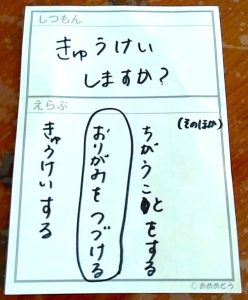 しつもん
きゅうけい
しますか?
えらぶ
(そのほか)
ちがうことをする
おりがみをつづける
きゅうけいする
©おめめどう